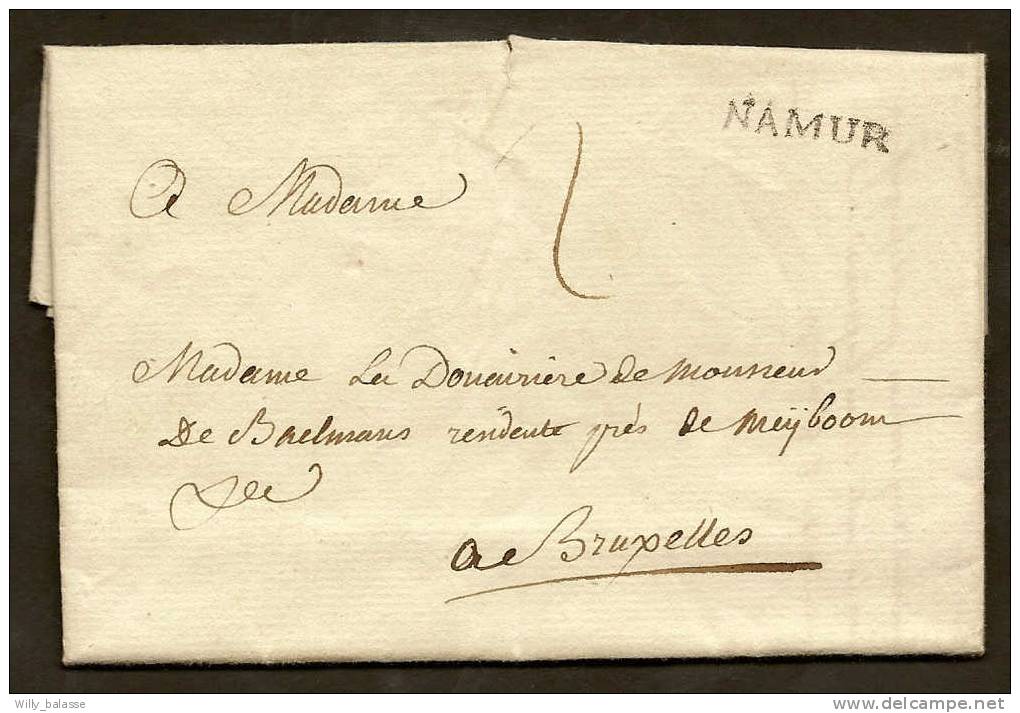 NAMUR
A Madame
Madame La Douairière de Monsieur
De Baelmans residente près de Meÿboom
a Bruxelles
Willy_balasse
delcampe.net